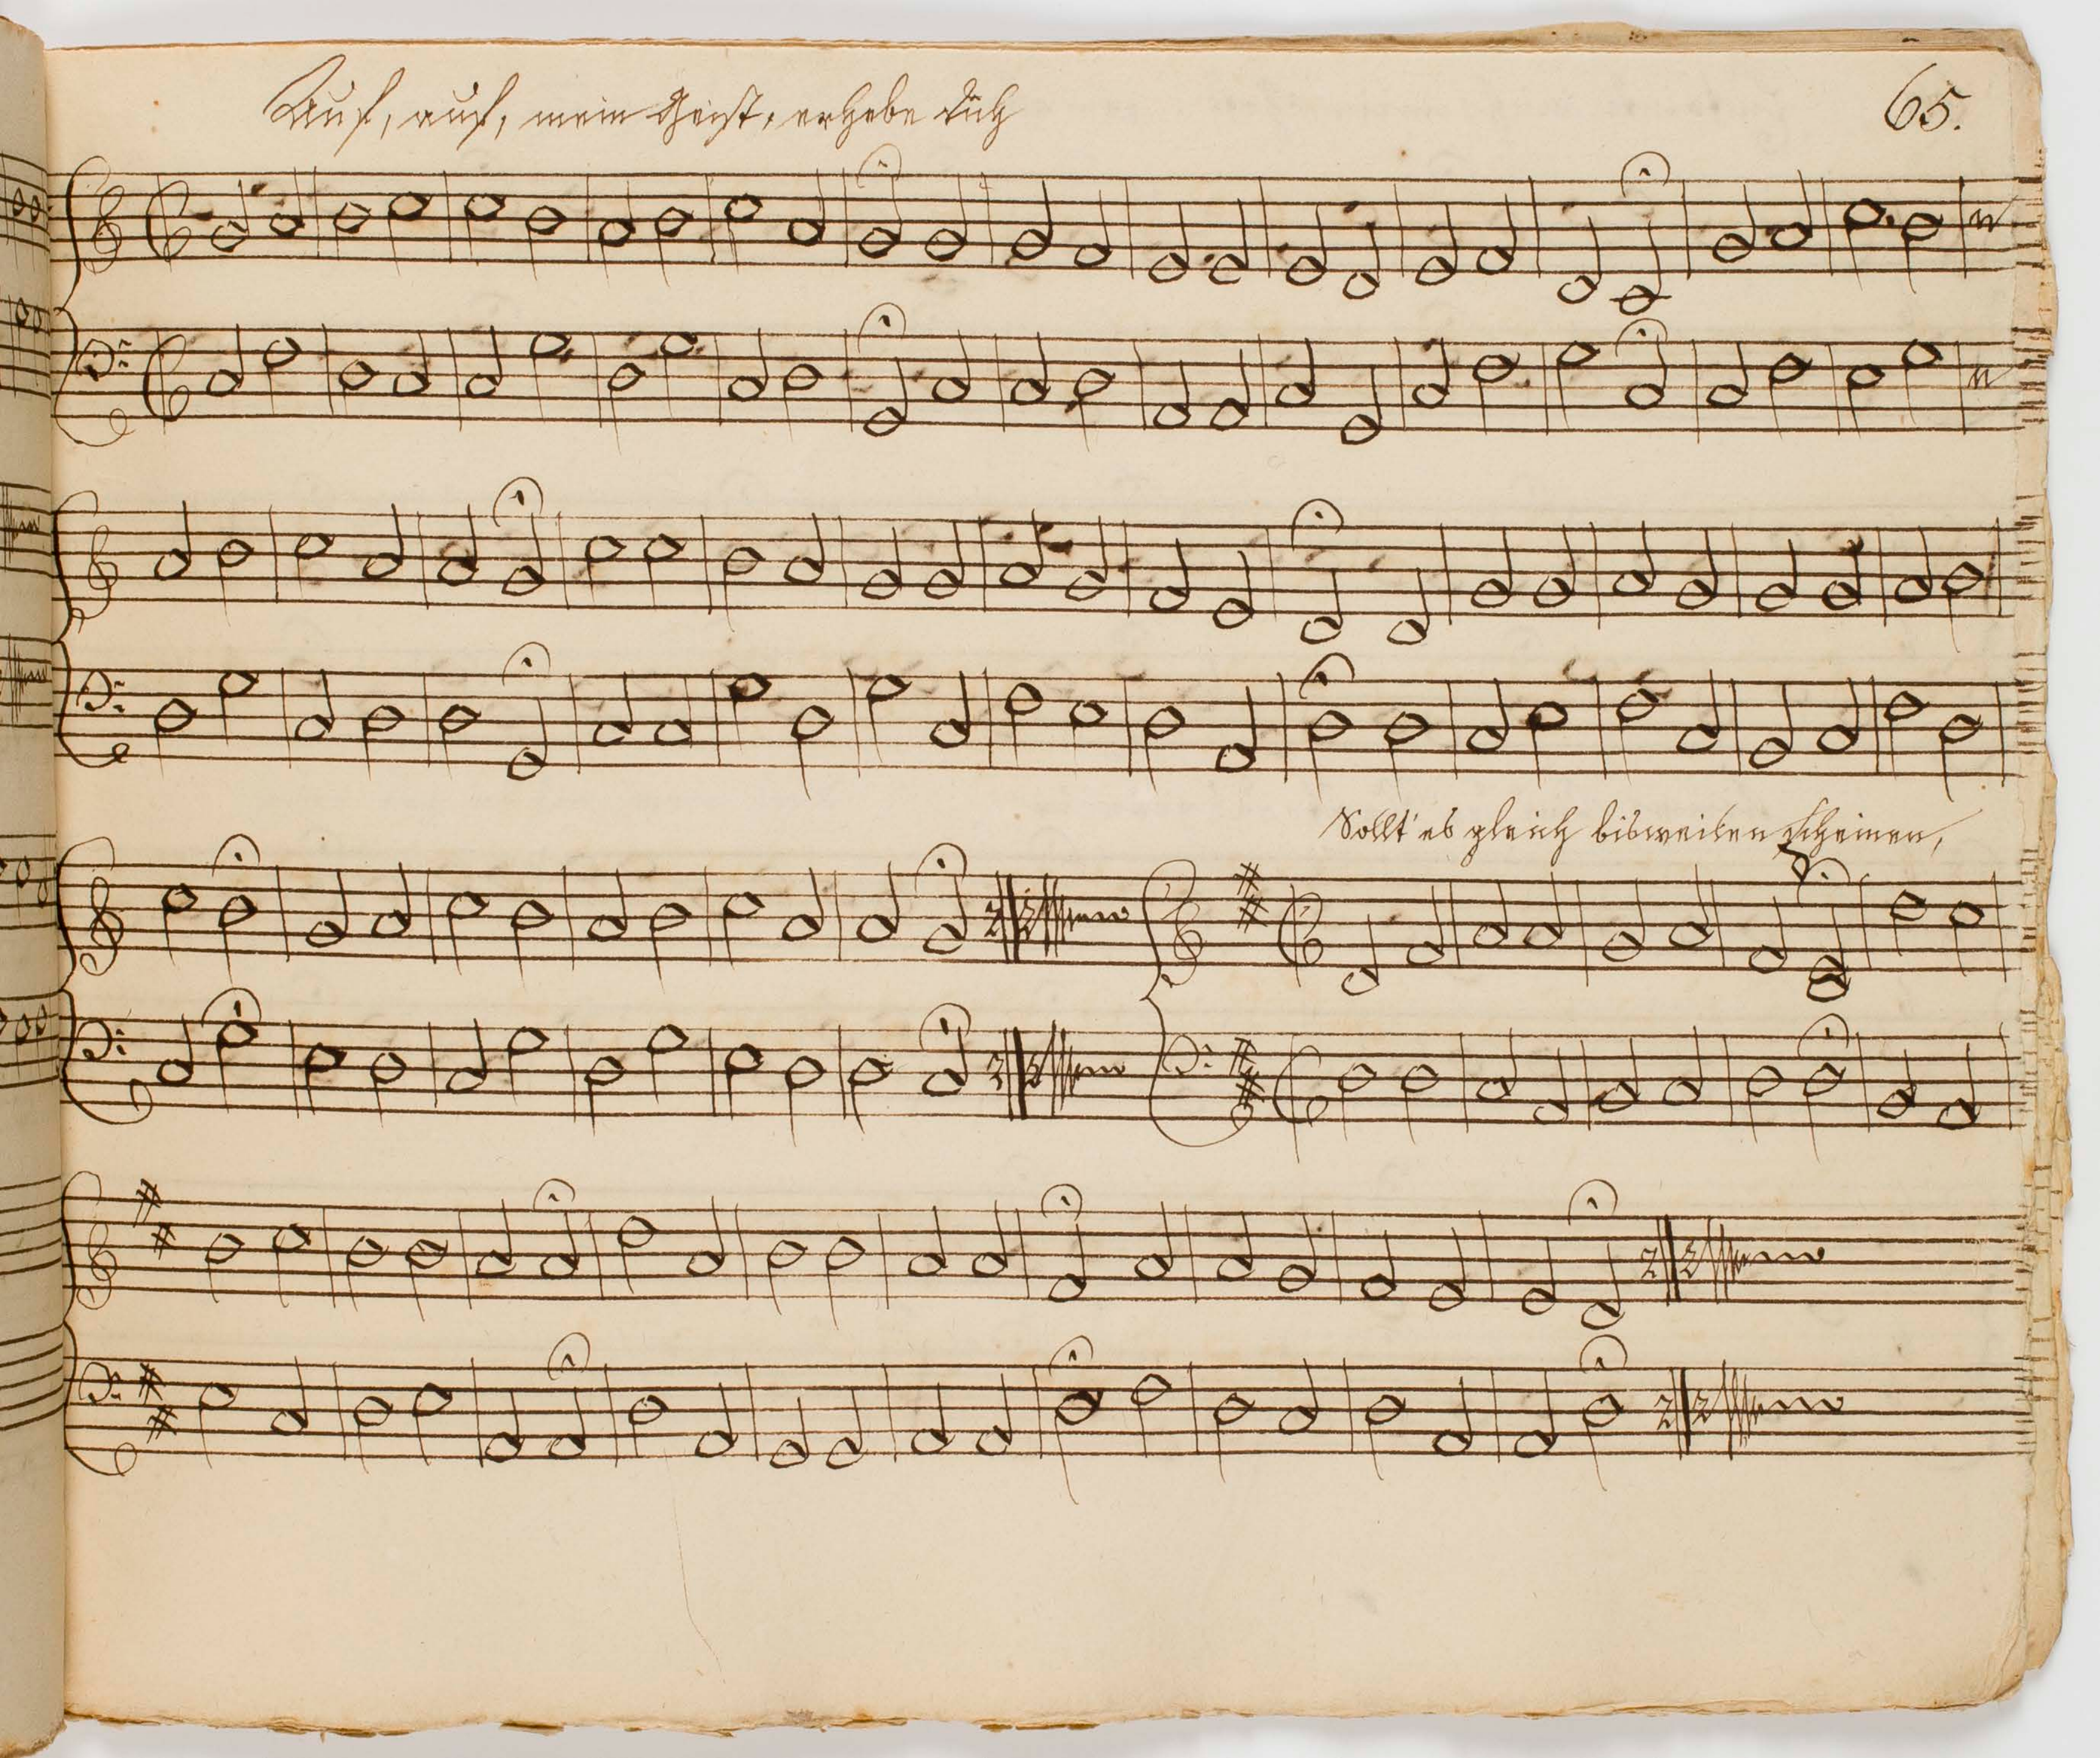 Auf, auf, mein Geist, erhebe dich
65.
Sollt' es gleich bisweilen scheinen,